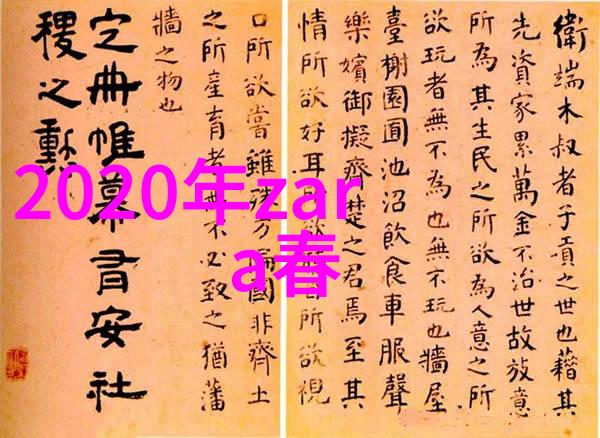 衛端木叔者子貢之世也藉其
先資家累萬金不治世故放意
所為其生民之所欲為人意之所
欲玩者無不為也無不玩也牆屋
臺榭園囿池沼飲食車服聲
樂嬪御擬齊楚之君焉至其
情所欲好耳所欲目所欲視
口所欲嘗雖殊方偏國非齊土
之所產育者無不必致之猶藩
牆之物也
定冊帷幕有安社
稷之勳
2020年zar
a春